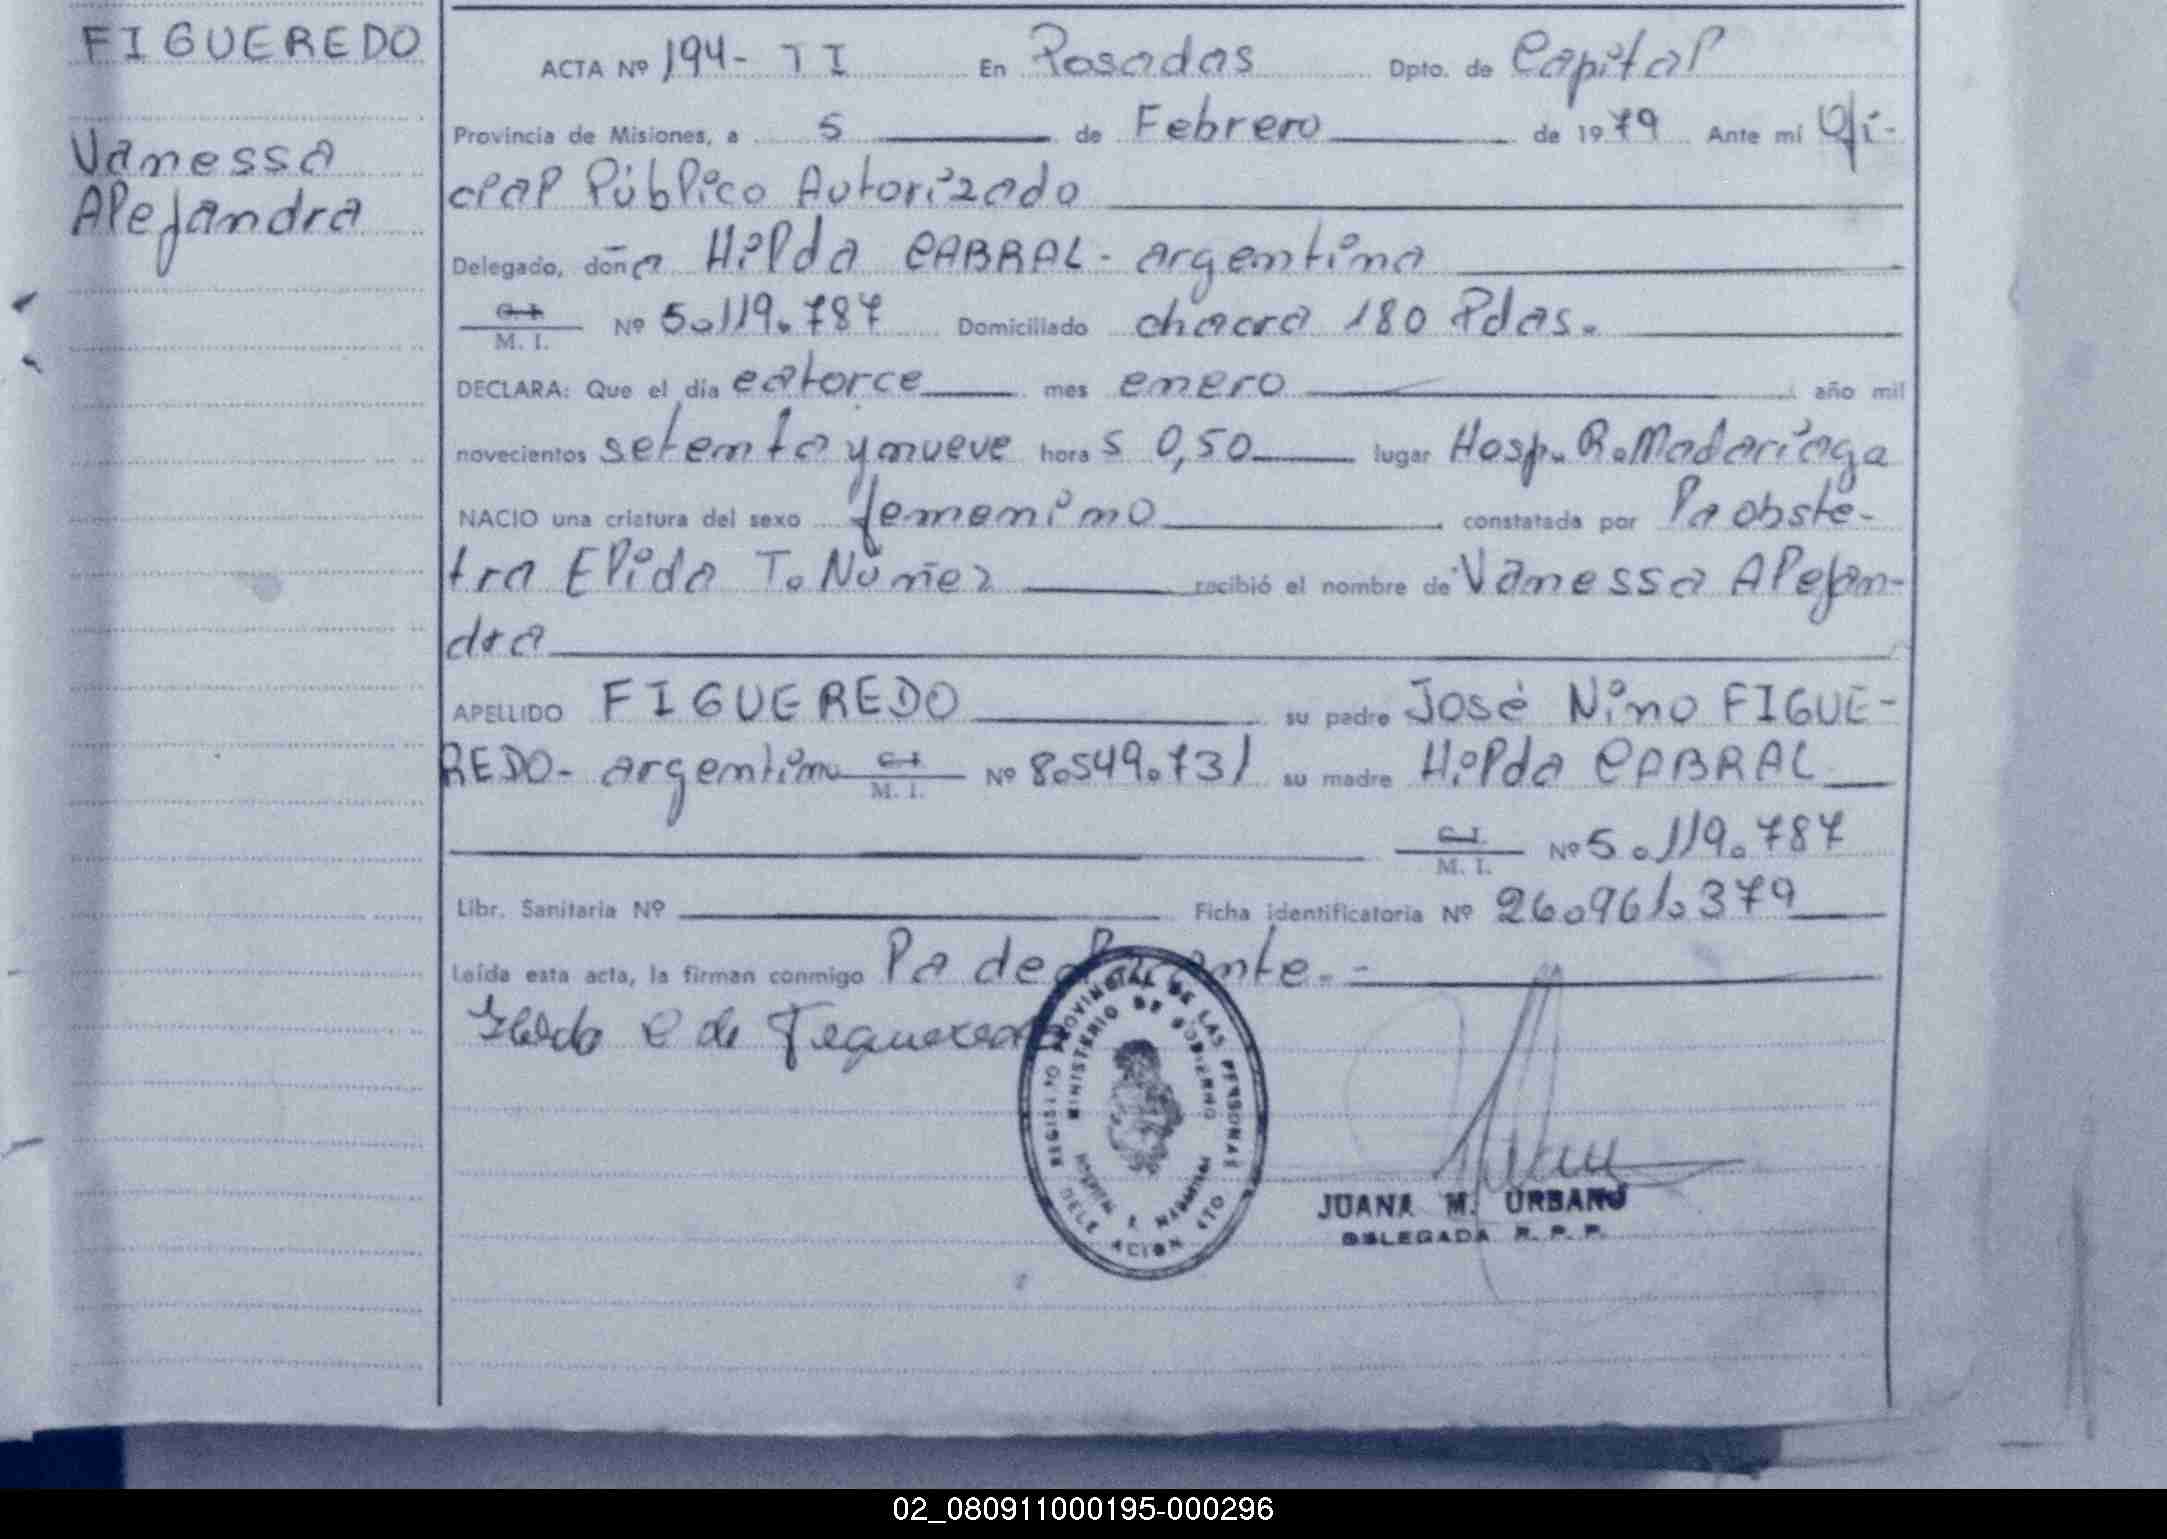 FIGUEREDO
Vanessa
Alejandra
ACTA Nº 194- TI En Posadas Dpto. de Capital
Provincia de Misiones, a 5 de Febrero de 1979 Ante mí Ofi-
cial Público Autorizado
Delegado, doña Hilda CABRAL - argentina
C.I. M. I. Nº 5.119.787 Domiciliado chacra 180 Pdas.
DECLARA: Que el día catorce mes enero año mil
novecientos setenta y nueve hora s 0,50 lugar Hosp. R. Madariaga
NACIO una criatura del sexo femenino constatada por la obste-
tra Elida T. Núñez recibió el nombre de Vanessa Alejan-
dra
APELLIDO FIGUEREDO su padre José Nino FIGUE-
REDO- argentino C.I. M. I. Nº 8.549.731 su madre Hilda CABRAL
C.I. M. I. Nº 5.119.787
Libr. Sanitaria Nº Ficha identificatoria Nº 26.961.379
Leída esta acta, la firman conmigo la declarante.-
Hilda C de Figueredo
REGISTRO PROVINCIAL DE LAS PERSONAS
MINISTERIO DE GOBIERNO
HOSPITAL R MADARIAGA
DELEGACION
JUANA M. URBANO
DELEGADA R. P. P.
02_080911000195-000296